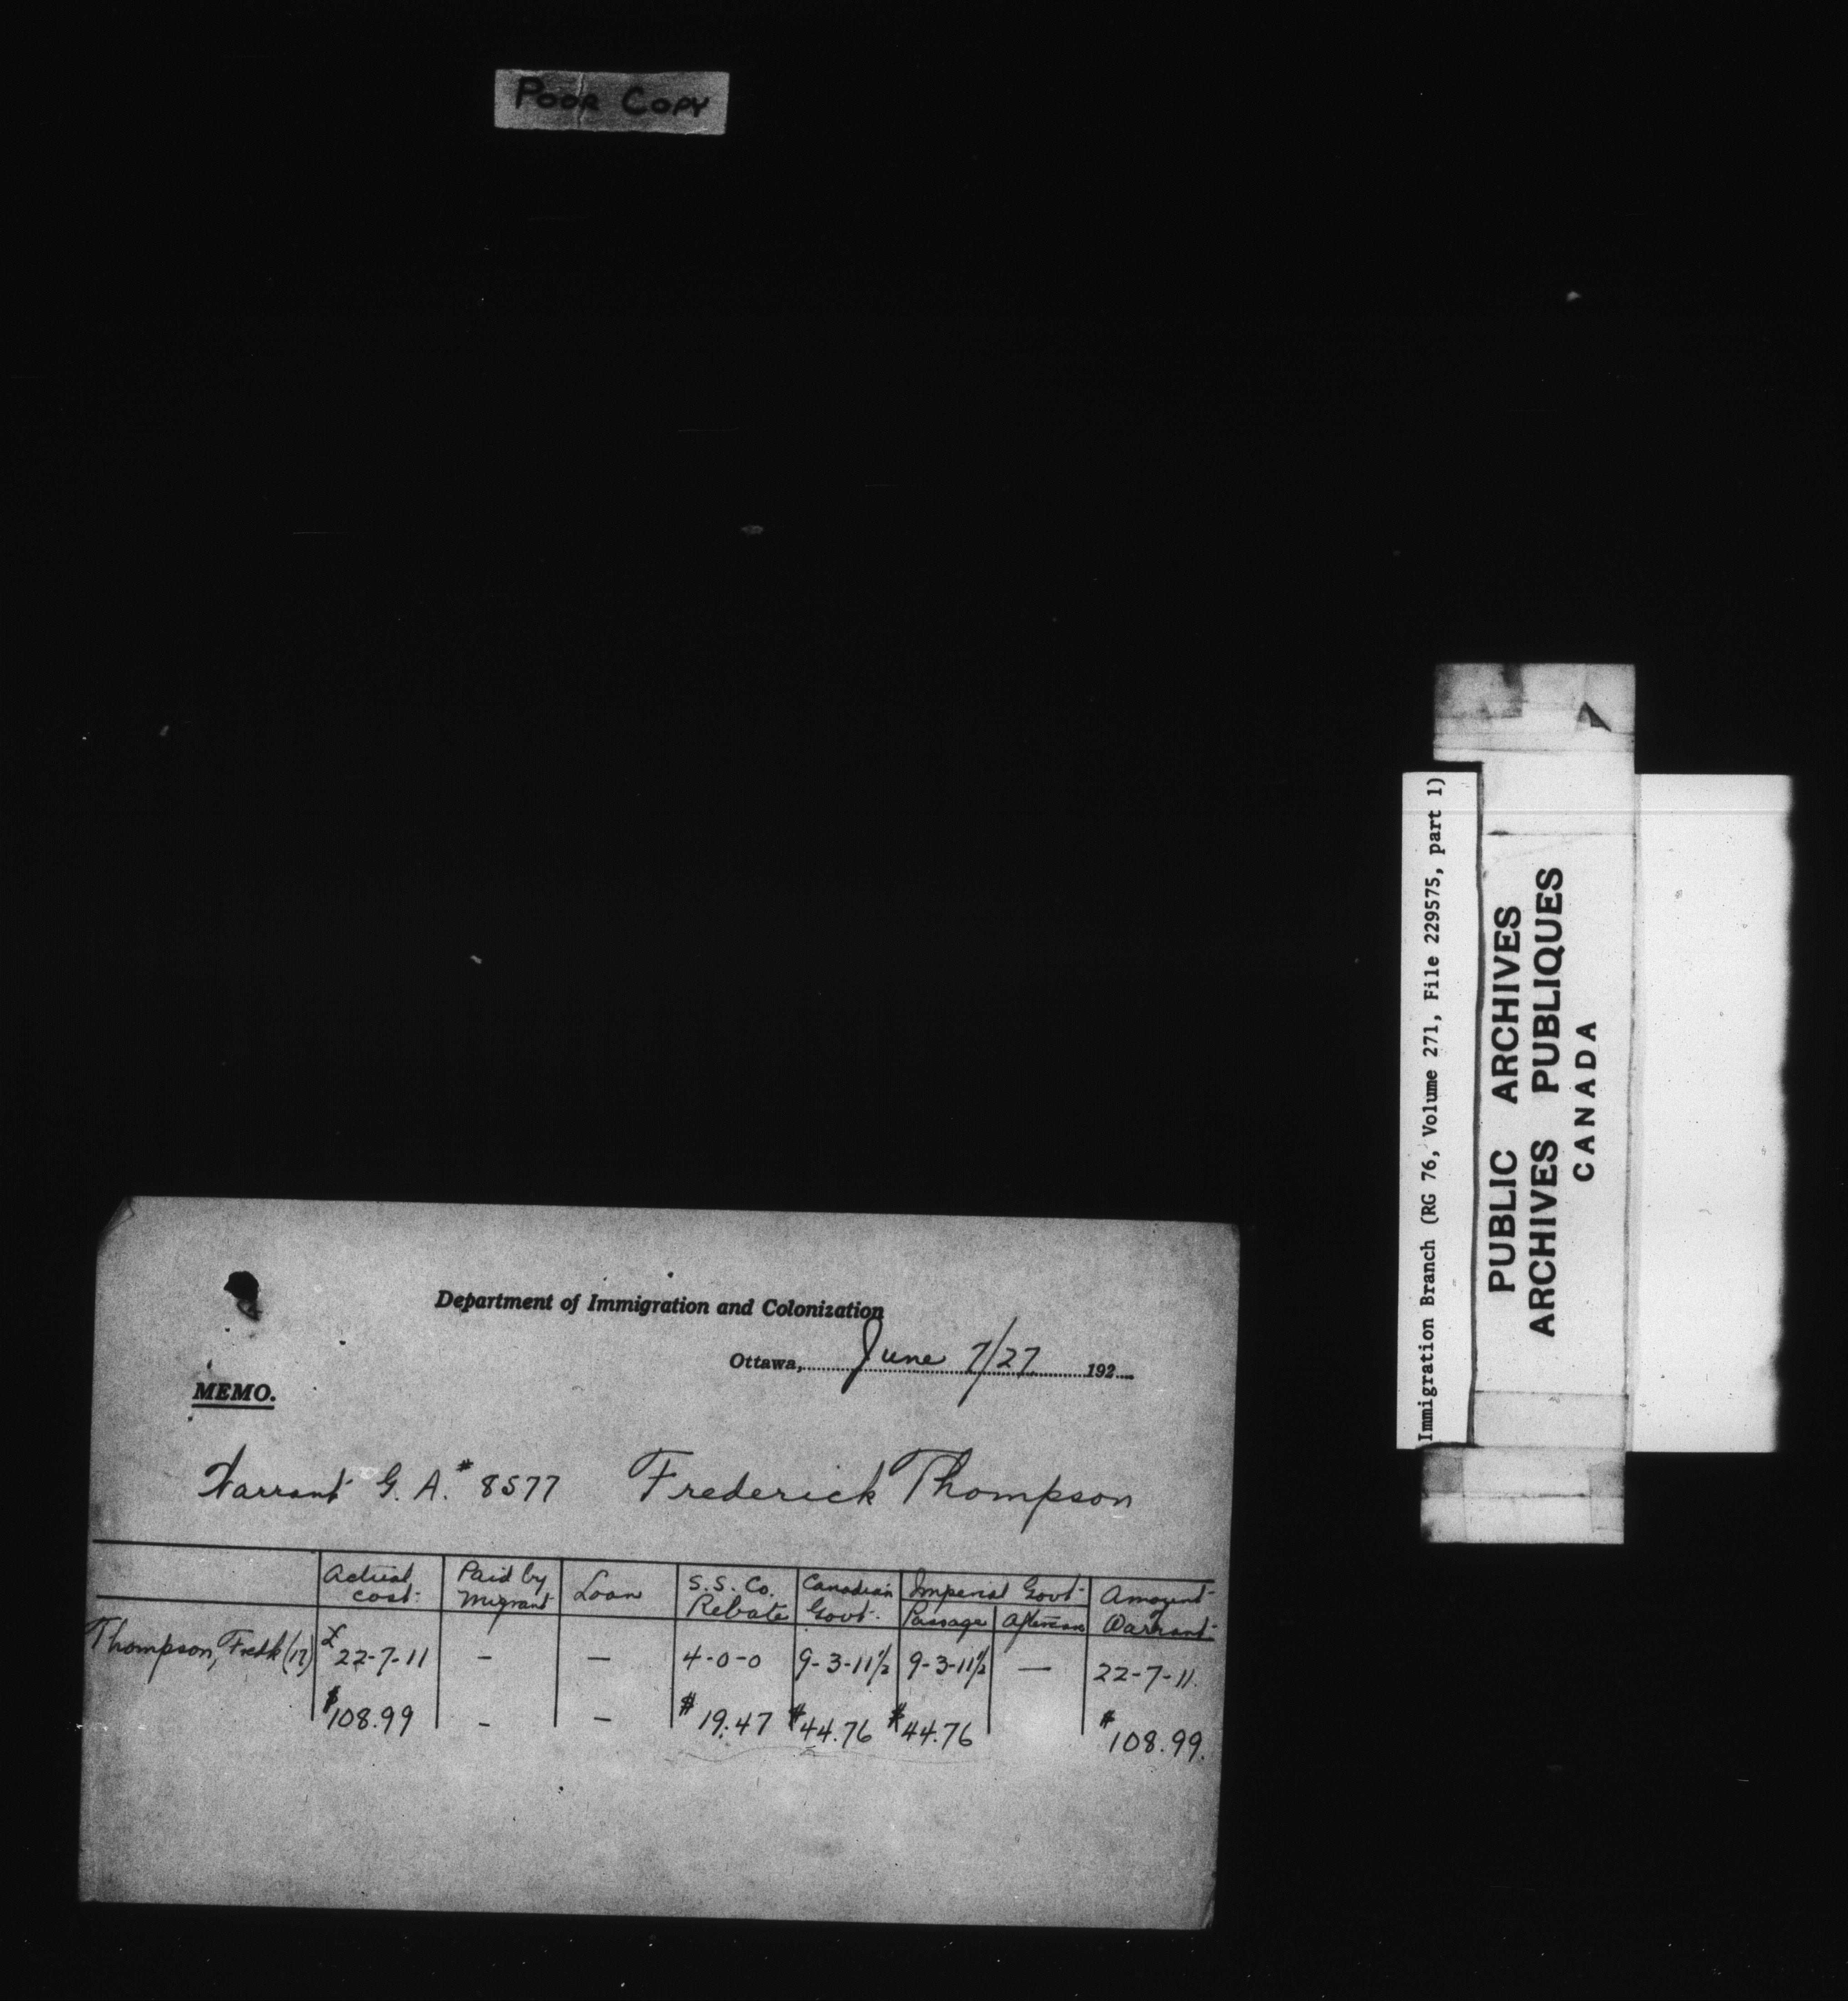 POOR COPY
Immigration Branch (RG 76, Volume 271, File 229575, part 1)
PUBLIC ARCHIVES
ARCHIVES PUBLIQUES
CANADA
Department of Immigration and Colonization
Ottawa, June 7/27 192
MEMO.
Warrant G. A. # 8577 Frederick Thompson
Actual cost Paid by Migrant Loan S.S. Co. Rebate Canadian Govt. Imperial Govt Passage Aftercare Amount Warrant
Thompson, Fredk (17) £22-7-11 - - 4-0-0 9-3-11½ 9-3-11½ - 22-7-11.
$108.99 - - $19.47 $44.76 $44.76 $108.99.